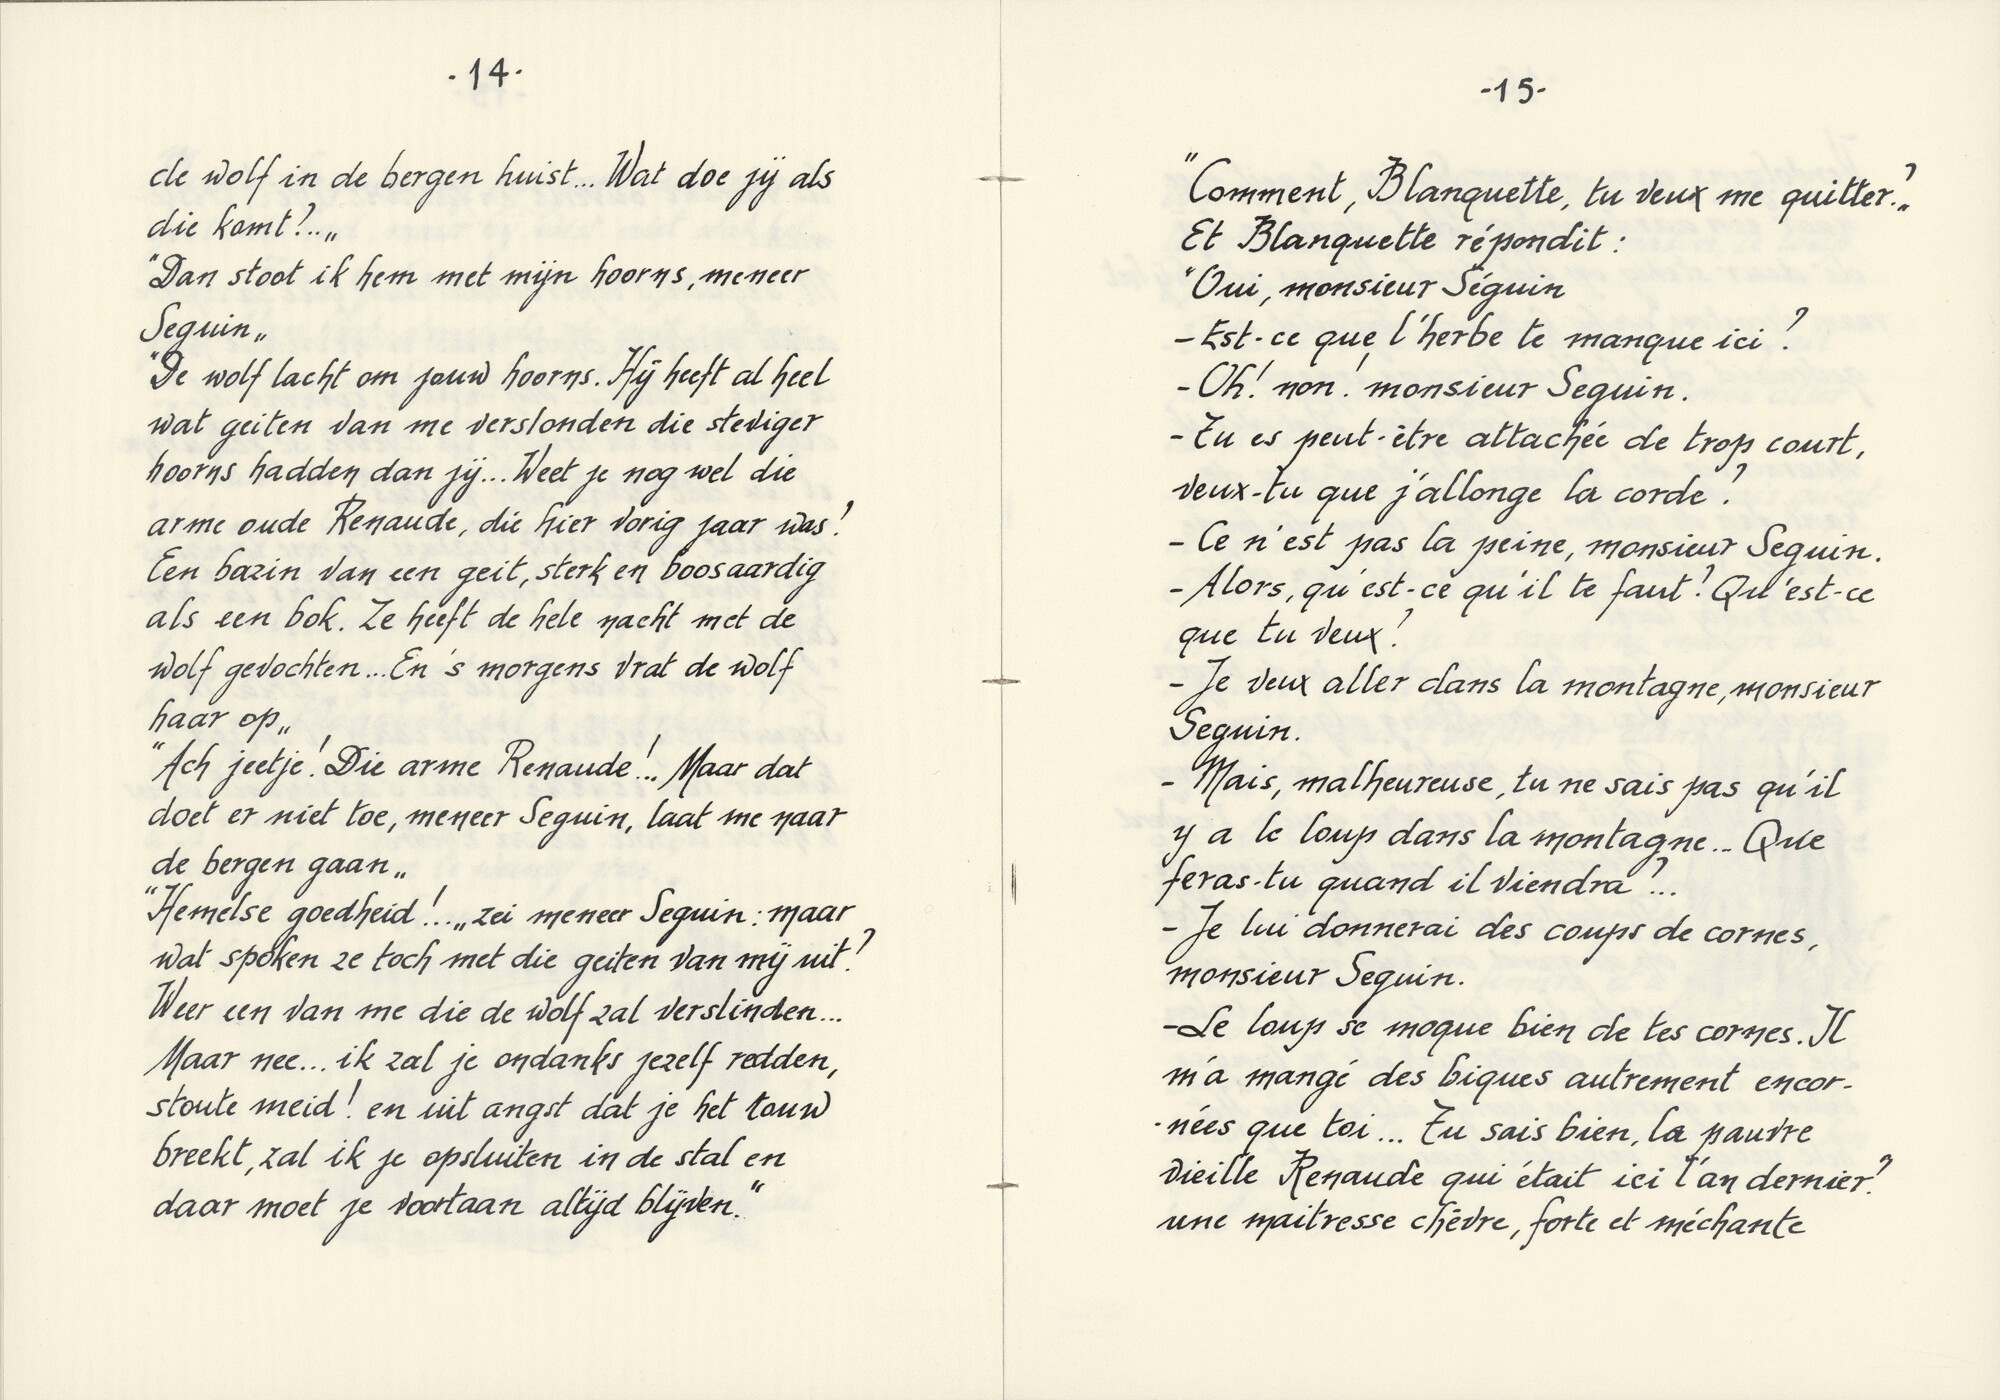 -14-
de wolf in de bergen huist... Wat doe jij als
die komt?..„
"Dan stoot ik hem met mijn hoorns, meneer
Seguin„
"De wolf lacht om jouw hoorns. Hij heeft al heel
wat geiten van me verslonden die steviger
hoorns hadden dan jij... Weet je nog wel die
arme oude Renaude, die hier vorig jaar was?
Een bazin van een geit, sterk en boosaardig
als een bok. Ze heeft de hele nacht met de
wolf gevochten... En 's morgens vrat de wolf
haar op„
"Ach jeetje! Die arme Renaude!.. Maar dat
doet er niet toe, meneer Seguin, laat me naar
de bergen gaan„
"Hemelse goedheid!..„ zei meneer Seguin: maar
wat spoken ze toch met die geiten van mij uit?
Weer een van me die de wolf zal verslinden...
Maar nee... ik zal je ondanks jezelf redden,
stoute meid! en uit angst dat je het touw
breekt, zal ik je opsluiten in de stal en
daar moet je voortaan altijd blijven."
-15-
"Comment, Blanquette, tu veux me quitter?„
Et Blanquette répondit:
"Oui, monsieur Séguin
- Est-ce que l'herbe te manque ici?
- Oh! non! monsieur Seguin.
- Tu es peut-être attachée de trop court,
veux-tu que j'allonge la corde?
- Ce n'est pas la peine, monsieur Seguin.
- Alors, qu'est-ce qu'il te faut? Qu'est-ce
que tu veux?
- Je veux aller dans la montagne, monsieur
Seguin.
- Mais, malheureuse, tu ne sais pas qu'il
y a le loup dans la montagne... Que
feras-tu quand il viendra?...
- Je lui donnerai des coups de cornes,
monsieur Seguin.
- Le loup se moque bien de tes cornes. Il
m'a mangé des biques autrement encor-
-nées que toi... Tu sais bien, la pauvre
vieille Renaude qui était ici l'an dernier?
une maitresse chèvre, forte et méchante